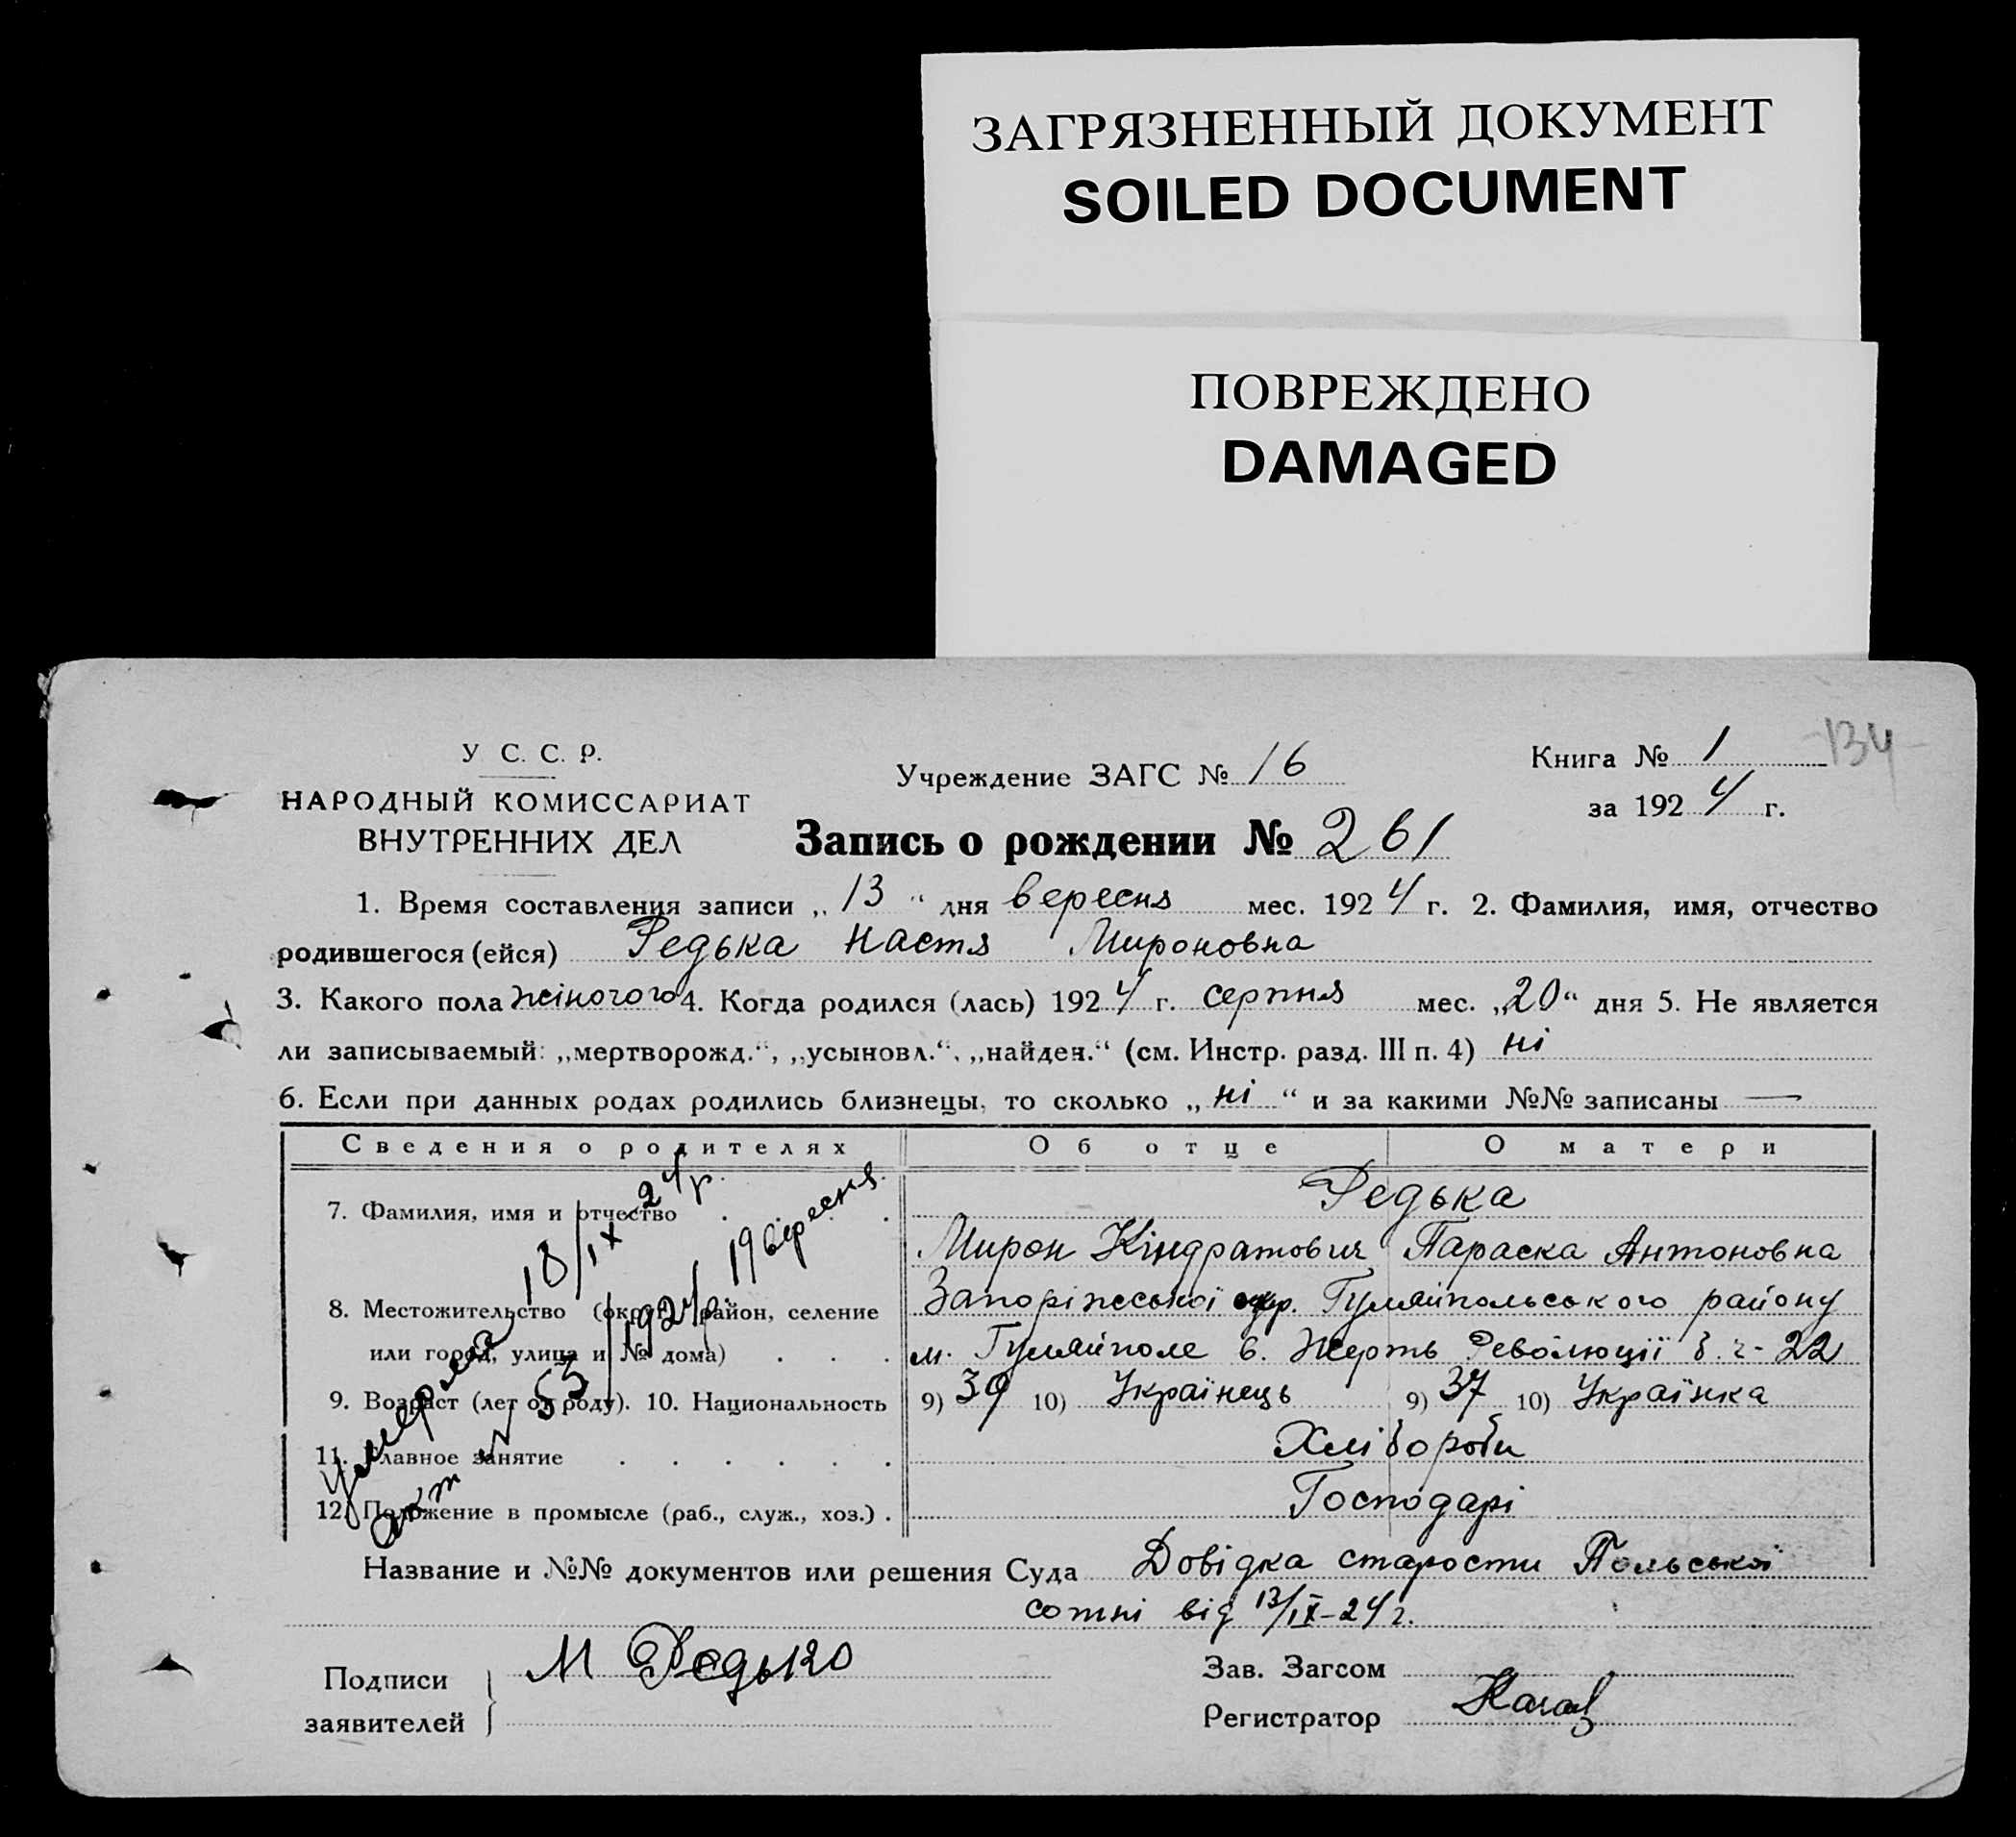 ЗАГРЯЗНЕННЫЙ ДОКУМЕНТ
SOILED DOCUMENT
ПОВРЕЖДЕНО
DAMAGED
134
У С. С. Р.
НАРОДНЫЙ КОМИССАРИАТ
ВНУТРЕННИХ ДЕЛ
Учреждение ЗАГС № 16
Книга № 1
за 1924 г.
Запись о рождении № 261
1. Время составления записи „13“ дня вересня мес. 1924 г. 2. Фамилия, имя, отчество
родившегося (ейся) Редька Настя Мироновна
3. Какого пола жіночого 4. Когда родился (лась) 1924 г. серпня мес. „20“ дня 5. Не является
ли записываемый: „мертворожд.“, „усыновл.“, „найден.“ (см. Инстр. разд. III п. 4) ні
6. Если при данных родах родились близнецы, то сколько „ні“ и за какими №№ записаны —
Сведения о родителях Об отце О матери
7. Фамилия, имя и отчество . . . . Редька
Мирон Кіндратович Параска Антоновна
8. Местожительство (округ, район, селение Запоріжської окр. Гуляйпольського району
или город, улица и № дома) . . . м. Гуляйполе в. Жертв Революції б. ч- 22
9. Возраст (лет от роду). 10. Национальность 9) 39 10) Українець 9) 37 10) Українка
11. Главное занятие . . . . . . Хлібороби
12. Положение в промысле (раб., служ., хоз.) . Господарі
Умерла 18/IX 24 р.
акт № 53/1924р. 19 вересня.
Название и №№ документов или решения Суда Довідка старости Польської
сотні від 13/IX-24 г.
Подписи
заявителей
М Редько
Зав. Загсом
Регистратор